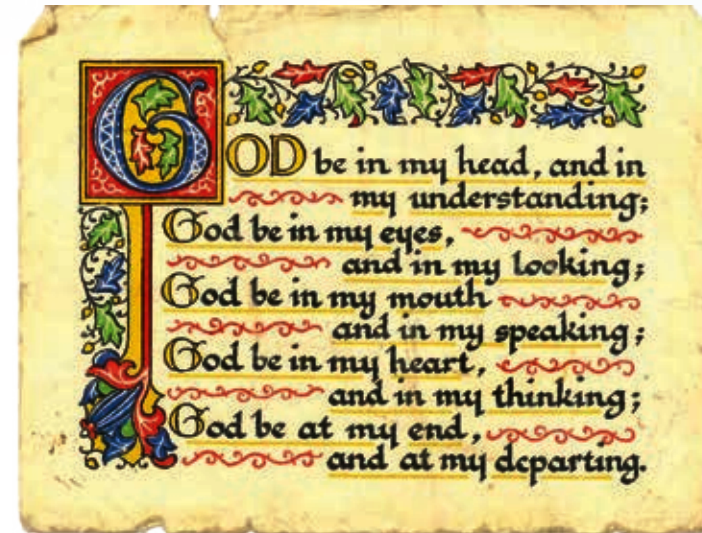 GOD be in my head, and in
my understanding;
God be in my eyes,
and in my looking;
God be in my mouth
and in my speaking;
God be in my heart,
and in my thinking;
God be at my end,
and at my departing.